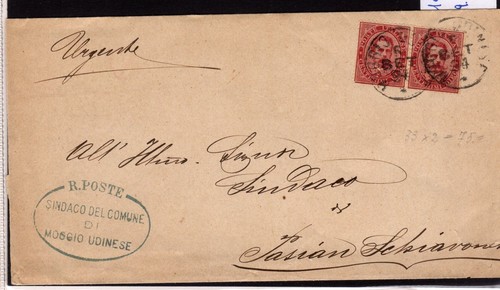 Urgente
33 x 2 = 750
All' Illmo. Signor
Sindaco
di
Pasian Schiavones
R. POSTE
SINDACO DEL COMUNE
DI
MOGGIO UDINESE